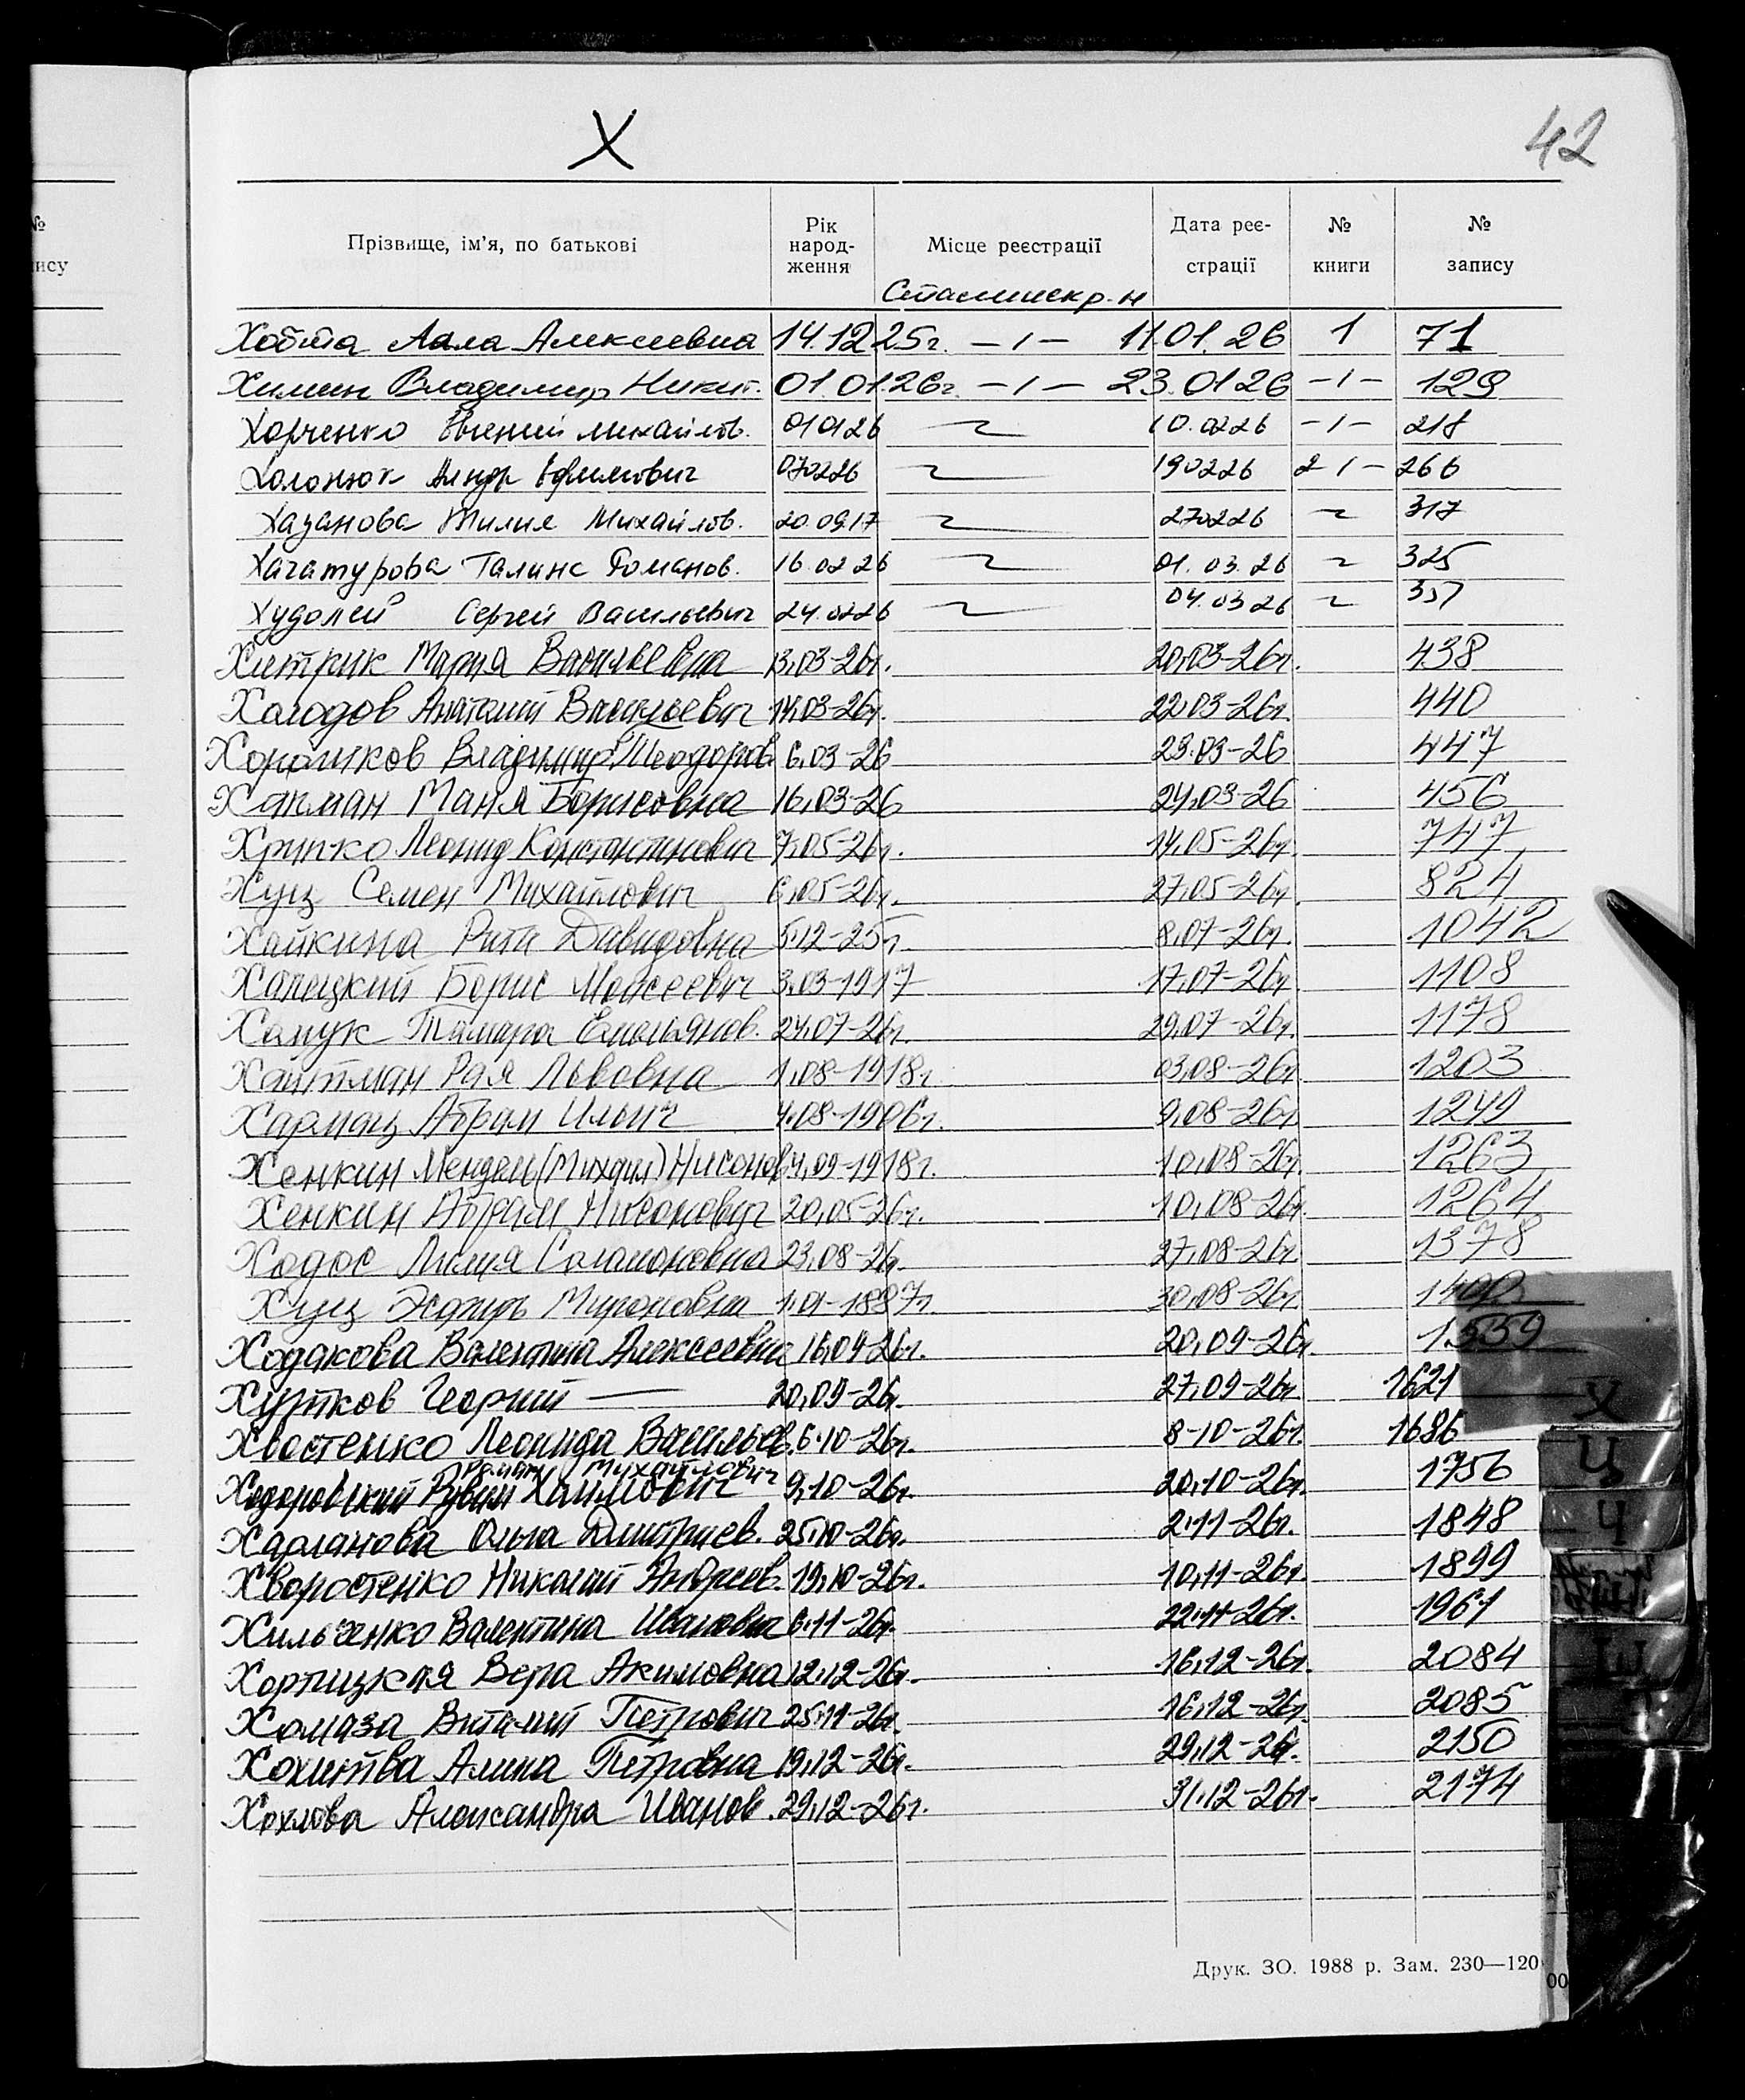 Х
42
№
ису
Прізвище, ім'я, по батькові Рік народження Місце реєстрації Дата реєстрації № книги № запису
Сталинск р-н
Хобта Алла Алексеевна 14.12.25г. -ı- 11.01.26 1 71
Химин Владимир Никит. 01.01.26г. -ı- 23.0126 -ı- 129
Харченко Евгений Михайлов. 010126 10.0226 -ı- 218
Холонюк Алндр Ефимович 070226 190226 2 ı- 266
Хазанова Михайлов. 20.0917 270226 317
Хачатурова Галина Романов. 16.0226 01.03.26 325
Худолей Сергей Васильевич 24.0226 04.0326 337
Хитрик Мария Васильевна 13,03-26г. 20,03-26г. 438
Холодов Анатолий Васильевич 14,03-26г. 22,03-26г. 440
Владимир Теодоров 6,03-26 23,03-26 447
Хакман Маня Борисовна 16,03-26 24,03-26 456
Хрипко Леонид Константинович 7,05-26г. 14,05-26г. 747
Хуц Семен Михайлович 6,05-26г. 27,05-26г. 824
Хайкина Рита Давидовна 5.12-25г. 8,07-26г. 1042
Борис Моисеевич 3,03-1917 17,07-26г 1108
Тамара Емельянов. 24,07-26г. 29,07-26г. 1178
Хайтман Рая Львовна 1,08-1918г 03,08-26г. 1203
Хармац Абрам Ильич 4.08-1906г. 9,08-26г. 1249
Хенкин Мендель (Михаил) Нисонов 4,09-1918г. 10,08-26г. 1263
Хенкин Абрам Нисонович 20,05-26г. 10,08-26г. 1264
Ходос Лилия Соломоновна 23,08-26г. 27,08-26г. 1378
Хуц Эсфирь Мироновна 1.01-1887г. 30,08-26г.
Ходакова Валентина Алексеевна 16,04-26г. 20,09-26г. 1559
Хуртков Георгий — 20,09-26г. 27,09-26г. 1621
Хвостенко Леонида Васильев. 6.10-26г. 8-10-26г. 1686
Роман Михайлович
Ходоровский Рувин Хаимович 9,10-26г. 20,10-26г. 1756
Харланова Ольга Дмитриев. 25,10-26г. 2.11-26г. 1848
Хворостенко Николай Андреев. 19,10-26г. 10,11-26г. 1899
Хильченко Валентина Ивановна 6.11-26г. 22.11-26г. 1961
Хортицкая Вера Акимовна 12.12-26г. 16,12-26г. 2084
Хомаза Виталий Петрович 25.11-26г. 16,12-26г. 2085
Хохитва Алина Петровна 19,12-26г. 29,12-26г. 2150
Хохлова Александра Иванов. 29,12-26г. 31.12-26г. 2174
Х
Ц
Ч
Ш
Друк. ЗО. 1988 р. Зам. 230—120
00